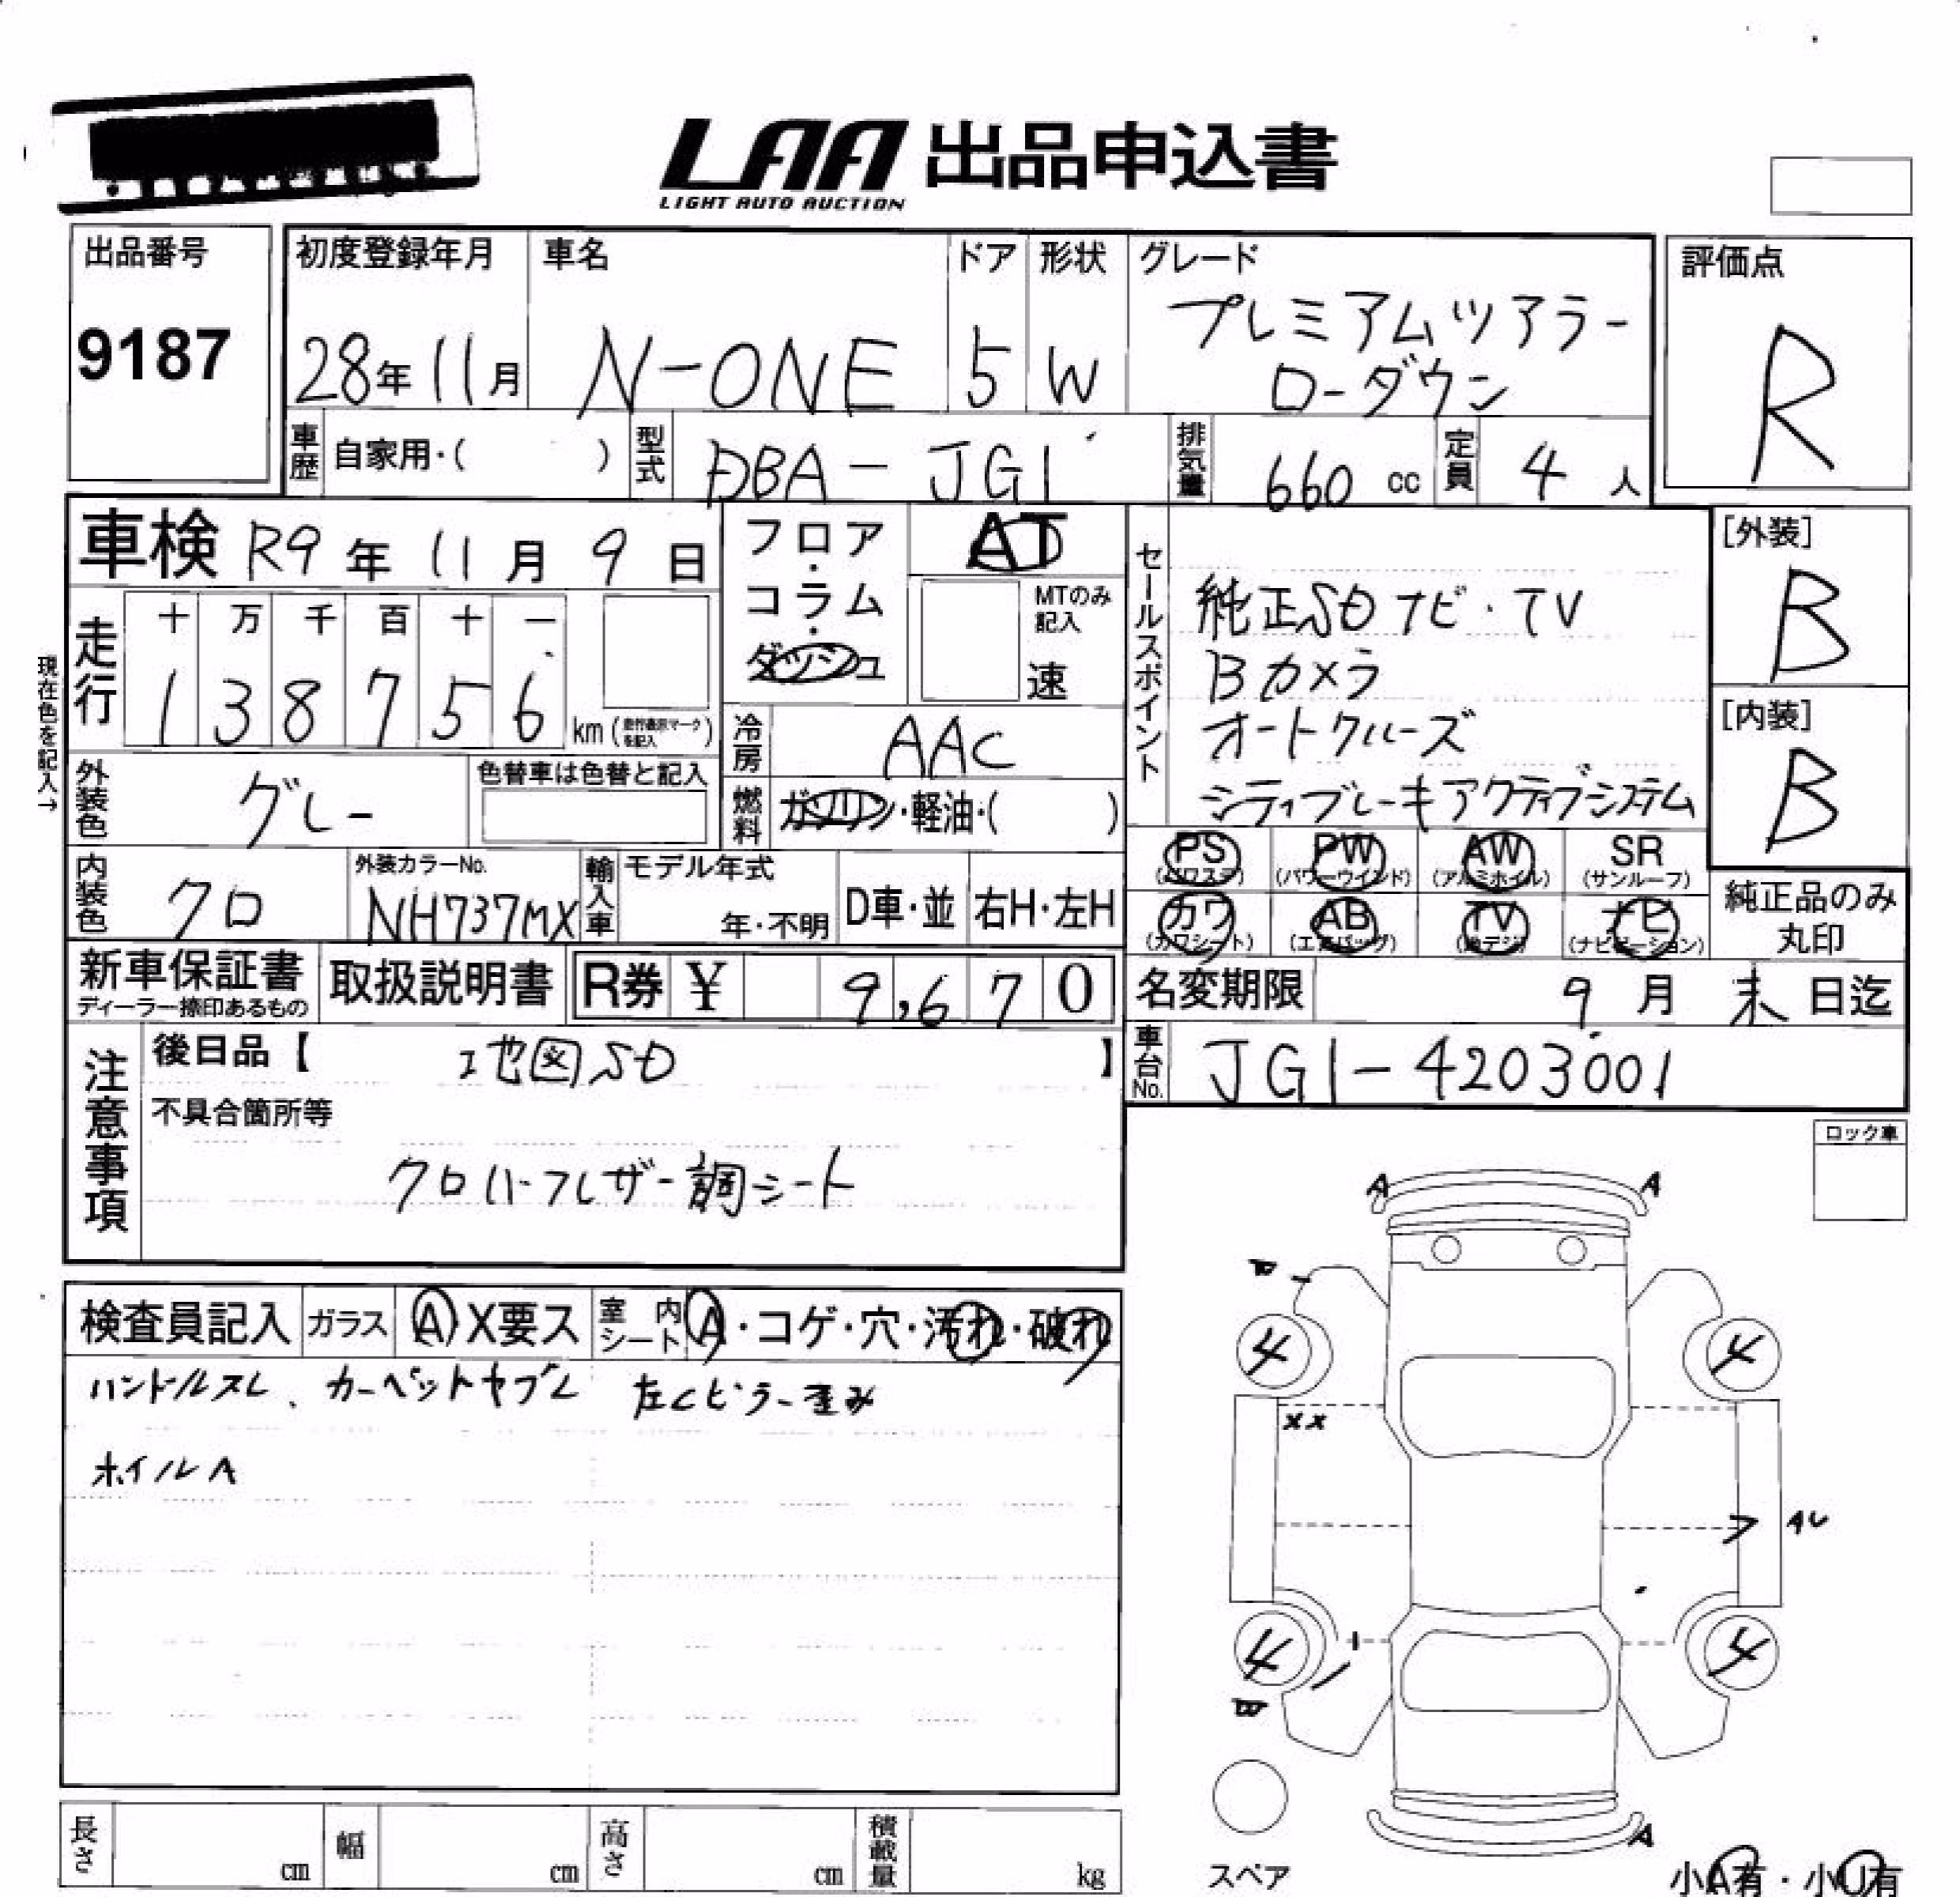 LAA 出品申込書
LIGHT AUTO AUCTION
出品番号
9187
初度登録年月
28年11月
車名
N-ONE
ドア
5
形状
W
グレード
プレミアムツアラー
ローダウン
評価点
R
車歴 自家用・( )
型式 DBA-JG1
排気量 660 cc
定員 4 人
車検 R9年 11月 9日
現在色を記入→
走行
十 万 千 百 十 一
1 3 8 7 5 6
km
フロア・コラム・ダッシュ
AT
MTのみ記入
速
冷房 AAC
燃料 ガソリン・軽油・( )
外装色 グレー
色替車は色替と記入
内装色 クロ
外装カラーNo.
NH737MX
輸入車 モデル年式
年・不明
D車・並 右H・左H
セールスポイント
純正SDナビ・TV
Bカメラ
オートクルーズ
シティブレーキアクティブシステム
[外装]
B
[内装]
B
PS (パワステ) PW (パワーウインド) AW (アルミホイル) SR (サンルーフ)
カワ (カワシート) AB (エアバッグ) TV (地デジ) ナビ (ナビゲーション)
純正品のみ
丸印
新車保証書
ディーラー捺印あるもの
取扱説明書
R券 ¥ 9,670
名変期限 9月 末日迄
車台No. JG1-4203001
注意事項
後日品【 地図SD 】
不具合箇所等
クロハーフレザー調シート
ロック車
検査員記入 ガラス A X要ス 室内シート A・コゲ・穴・汚れ・破れ
ハンドルスレ、カーペットヤブレ 左Cピラー歪み
ホイルA
A A
4 4
XX
AU
4 4
A
スペア
小A有・小U有
長さ cm 幅 cm 高さ cm 積載量 kg